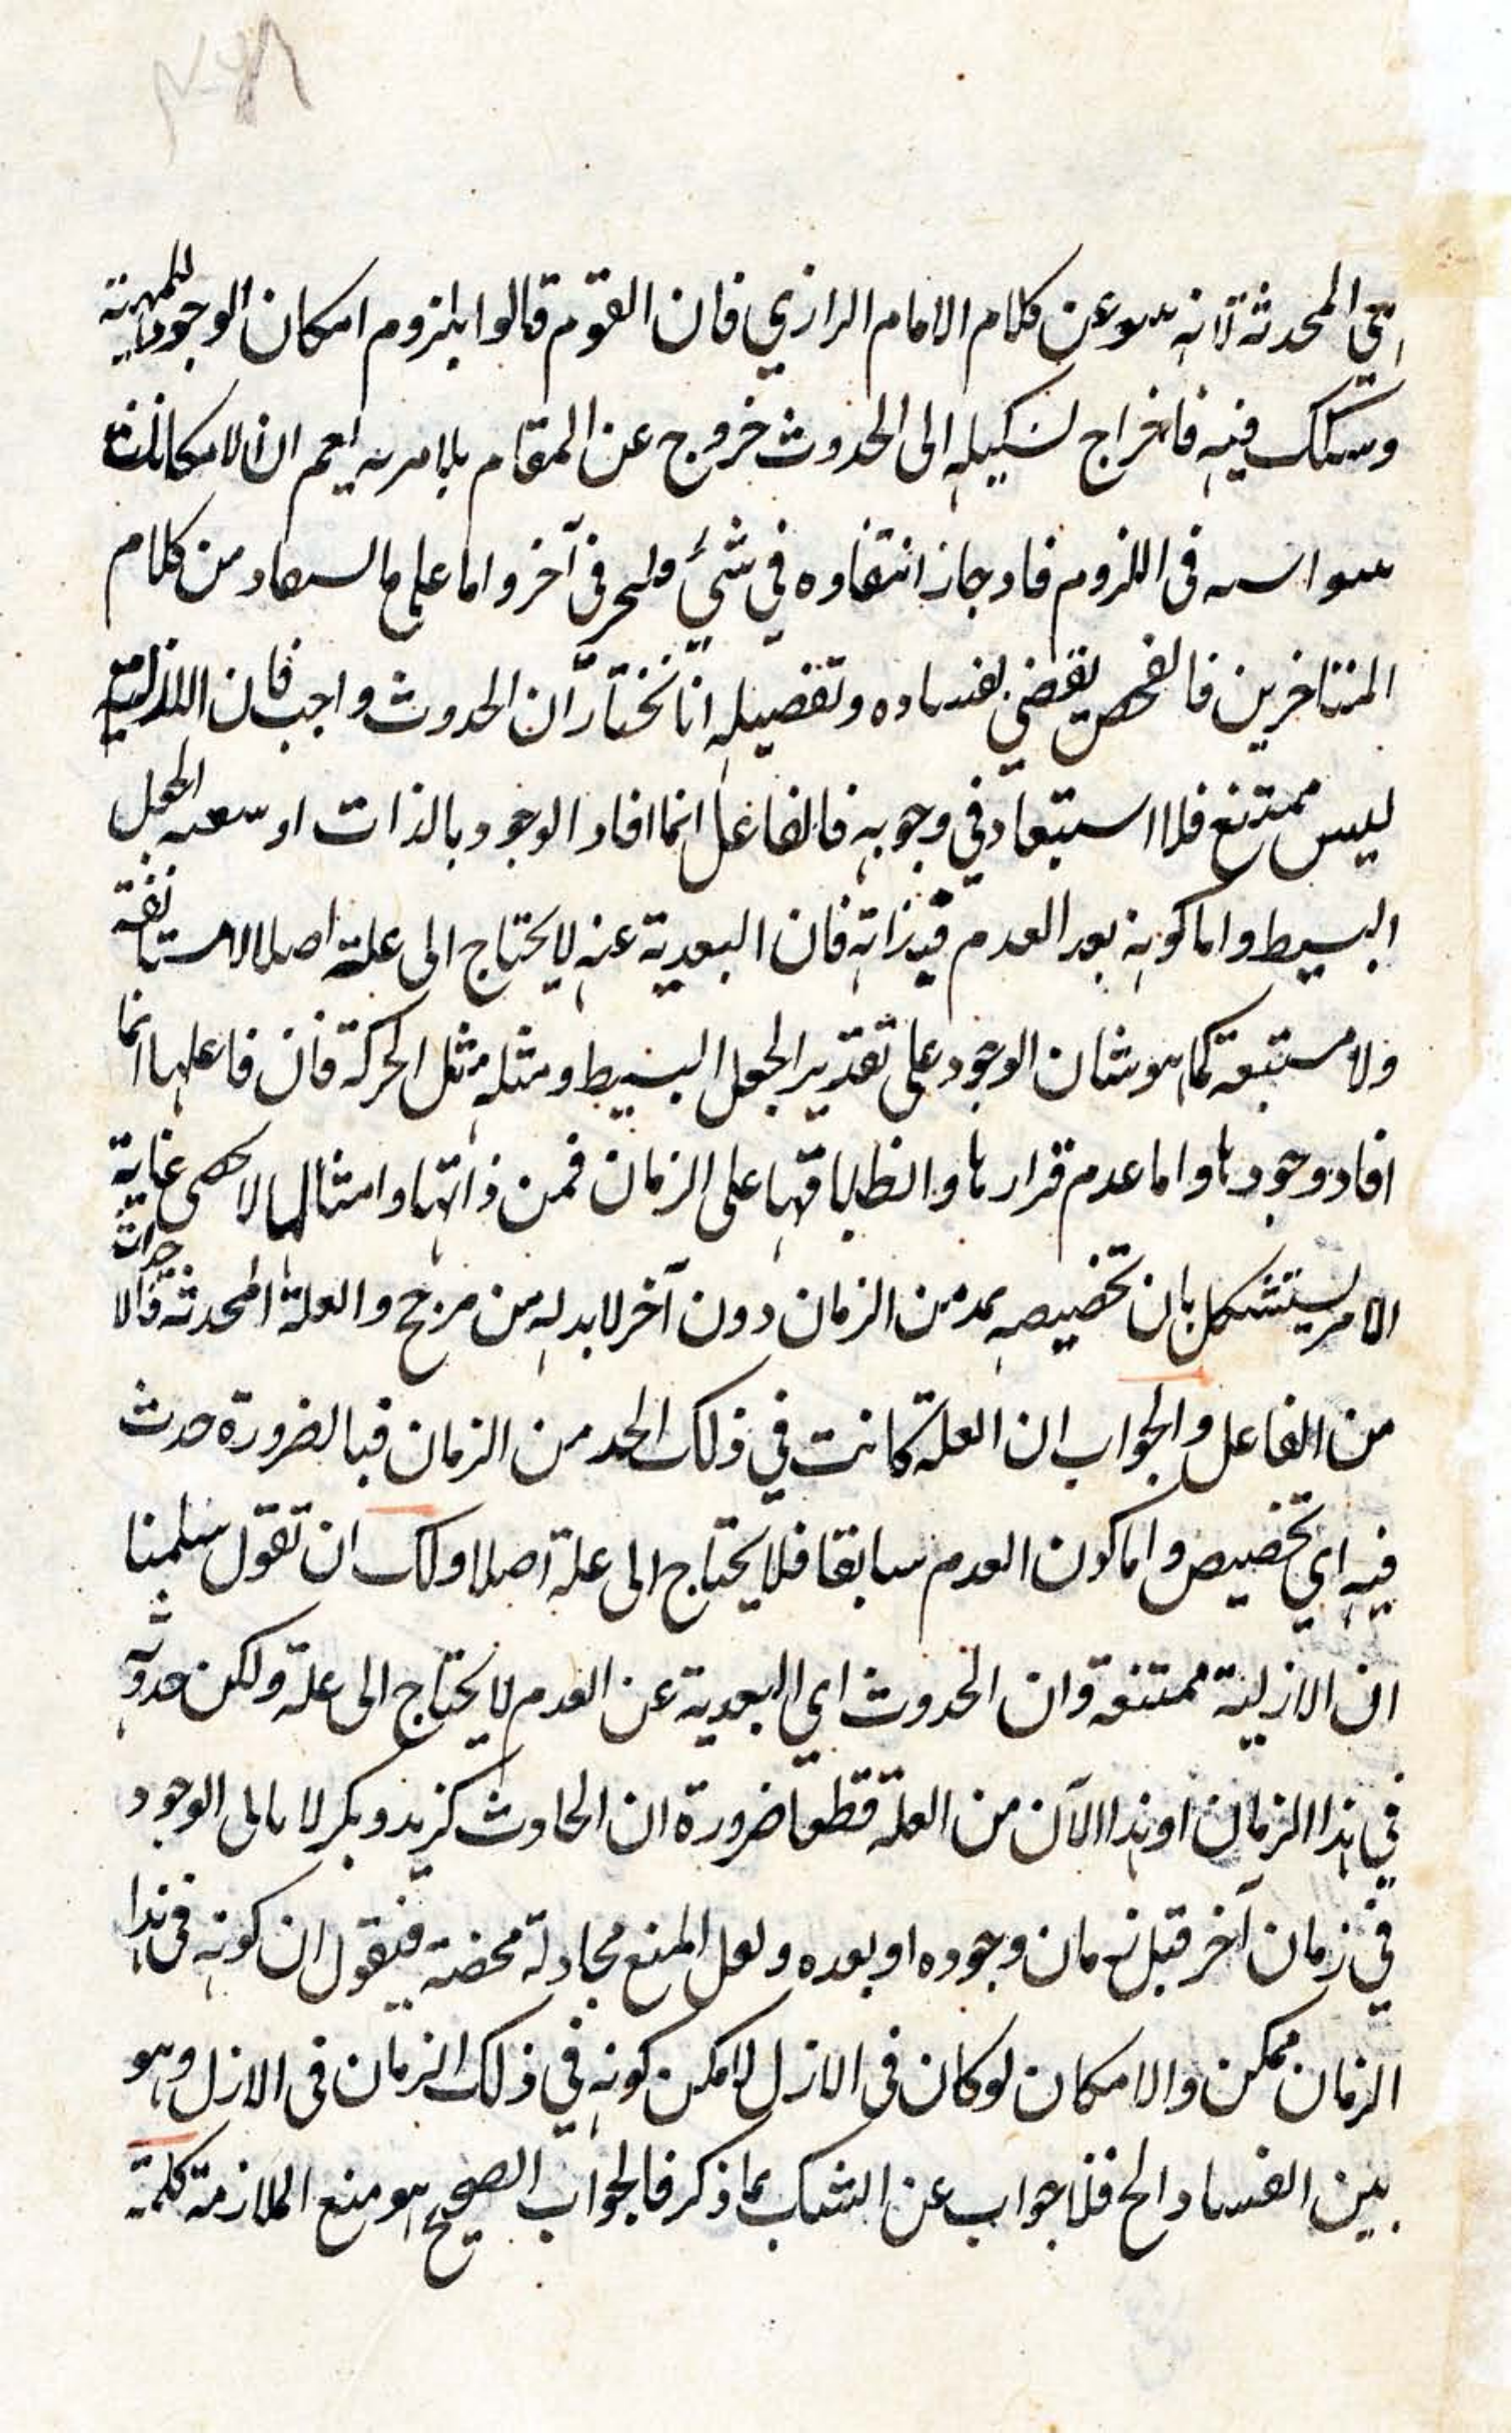 هي المحدثة لانه عن كلام الامام الرازي فان القوم قالوا بلزوم امكان الوجود للمهية
وشكك فيه فاخراج تشكيكه الى الحدوث خروج عن المقام بلا مرية نعم ان الامكانات
في اللزوم فاد جاز انتفاوه في شيء في آخر واما على ما من كلام
المتاخرين فالفحص يقضي بفساده وتفصيله انا نختار ان الحدوث واجب فان اللازلية
ليس ممتنع فلا استبعاد في وجوبه فالفاعل انما افاد الوجود بالذات او الجعل
البسيط واما كونه بعد العدم فبذاته فان البعدية عنه لا يحتاج الى علة اصلا لا مستانفة
ولا مستتبعة كما هو شان الوجود على تقدير الجعل البسيط ومثله مثل الحركة فان فاعلها انما
افاد وجودها واما عدم قرارها وانطباقها على الزمان فمن ذاتها وامثالها لا غاية
الامر يستشكل بان تخصيصه بحد من الزمان دون آخر لا بد له من مرجح والعلة المحدثة
من الفاعل والجواب ان العلة كانت في ذلك الحد من الزمان فبالضرورة حدث
فيه اي تخصيص واما كون العدم سابقا فلا يحتاج الى علة اصلا ولك ان تقول سلمنا
ان الازلية ممتنعة وان الحدوث اي البعدية عن العدم لا يحتاج الى علة ولكن حدوثه
في هذا الزمان او هذا الآن من العلة قطعا ضرورة ان الحادث كزيد وبكر لا يابى الوجود
في زمان آخر قبل زمان وجوده او بعده ولعل المنع مجادلة محضة فنقول ان كونه في هذا
الزمان ممكن والامكان لو كان في الازل لامكن كونه في ذلك الزمان في الازل وهو
بين الفساد الخ فلا جواب عن الشك بما ذكر فالجواب الصحيح هو منع الملازمة كلمة